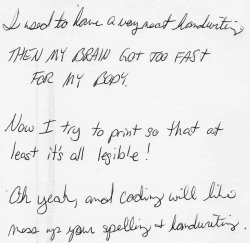 I used to have a very neat handwriting
THEN MY BRAIN GOT TOO FAST
FOR MY BODY.
Now I try to print so that at
least it's all legible!
Oh yeah, and coding will like
mess up your spelling & handwriting.